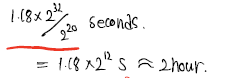 1.18 × 2^32 / 2^20 seconds.
= 1.18 × 2^12 S ≈ 2 hour.